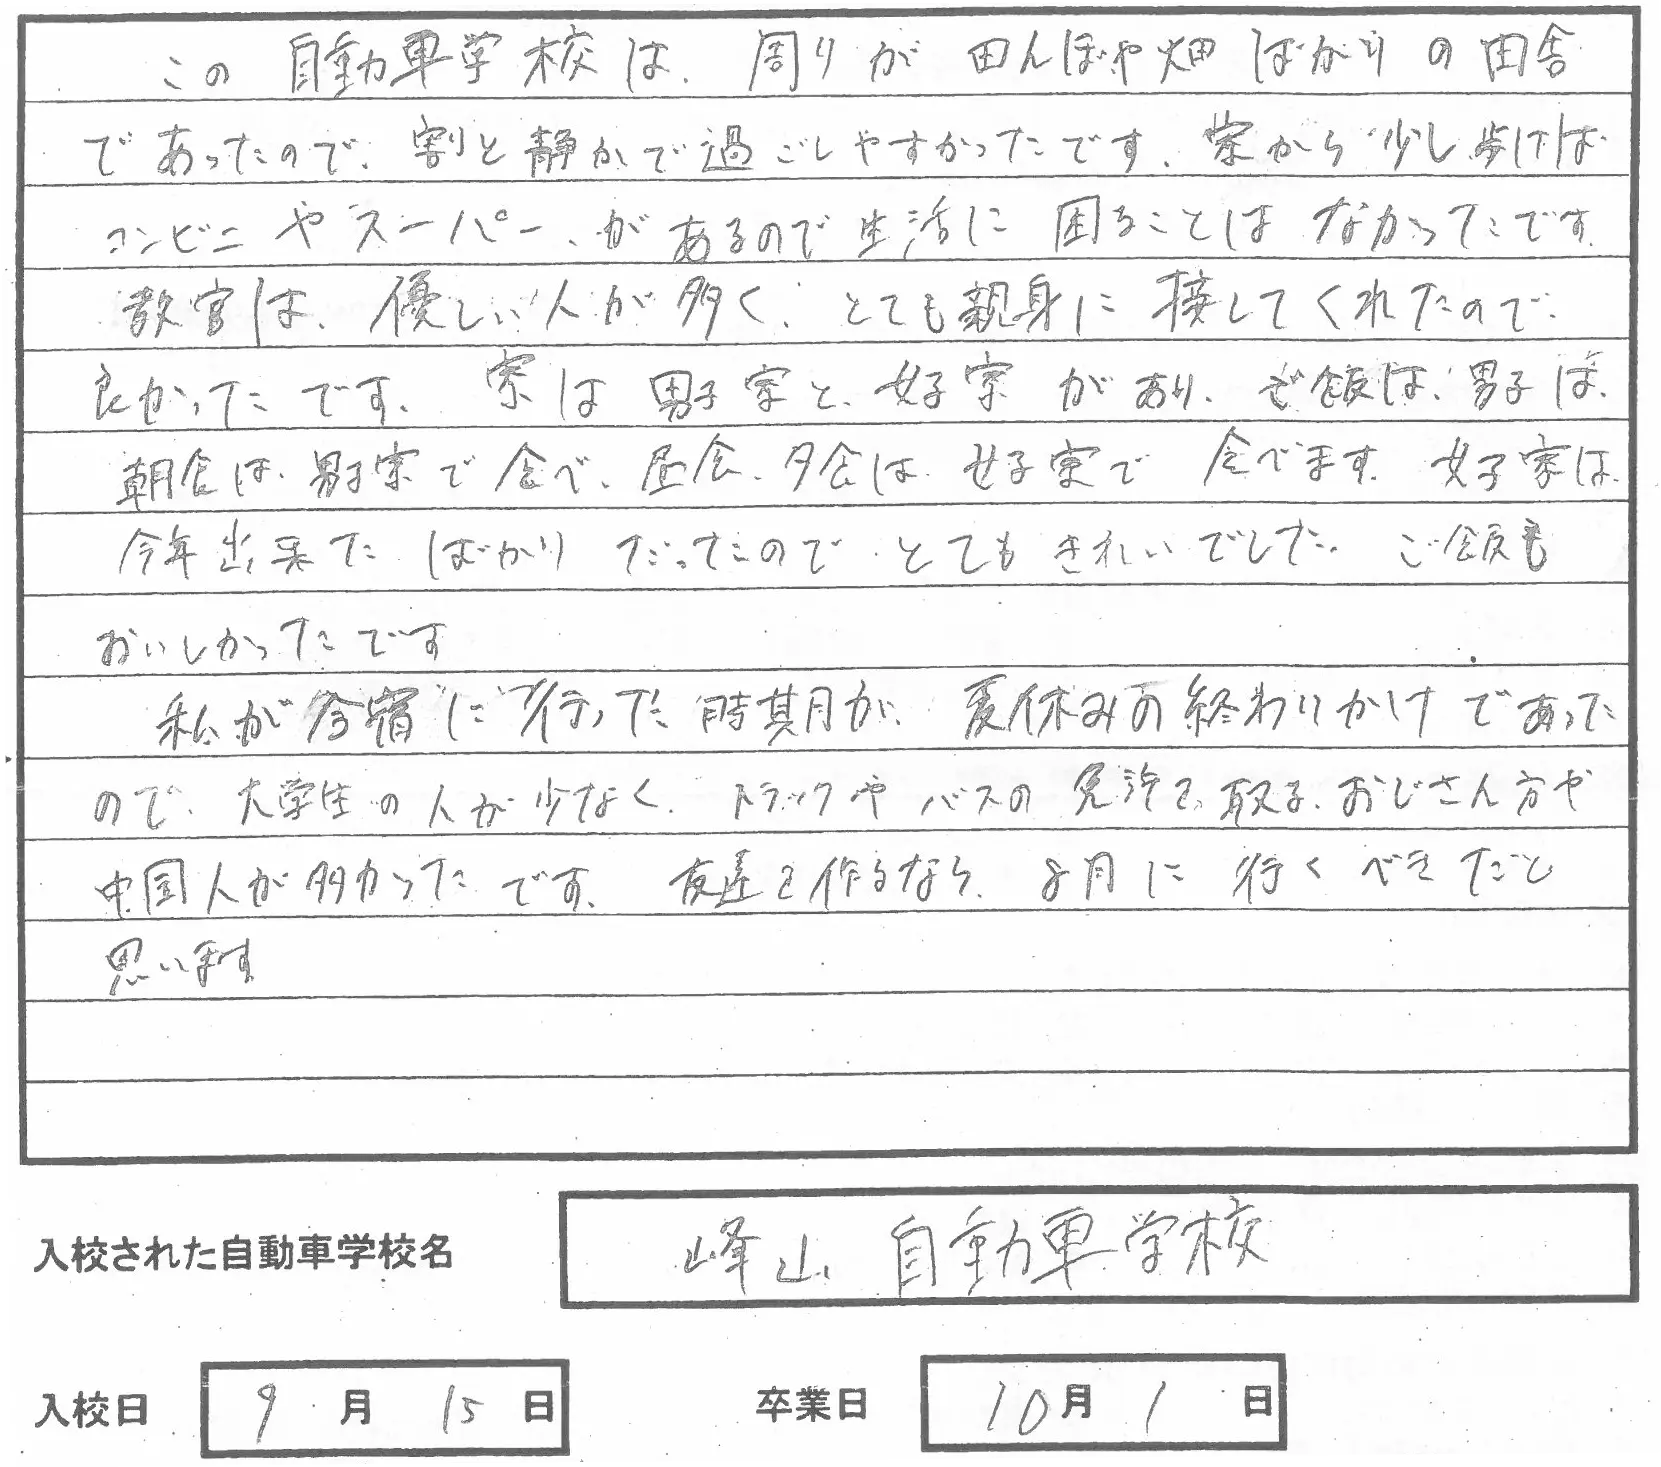 この自動車学校は、周りが田んぼや畑ばかりの田舎
であったので、割と静かで過ごしやすかったです。寮から少し歩けば
コンビニやスーパー、があるので生活に困ることはなかったです。
教官は、優しい人が多く、とても親身に接してくれたので
良かったです。寮は男子寮と、女子寮があり、ご飯は、男子は、
朝食は、男子寮で食べ、昼食、夕食は、女子寮で食べます。女子寮は、
今年出来たばかりだったのでとてもきれいでした。ご飯も
おいしかったです
私が合宿に行った時期が、夏休みの終わりかけであった
ので、大学生の人が少なく、トラックやバスの免許を取る、おじさん方や
中国人が多かったです。友達を作るなら、8月に行くべきだと
思います
入校された自動車学校名 峰山自動車学校
入校日 9月15日 卒業日 10月1日